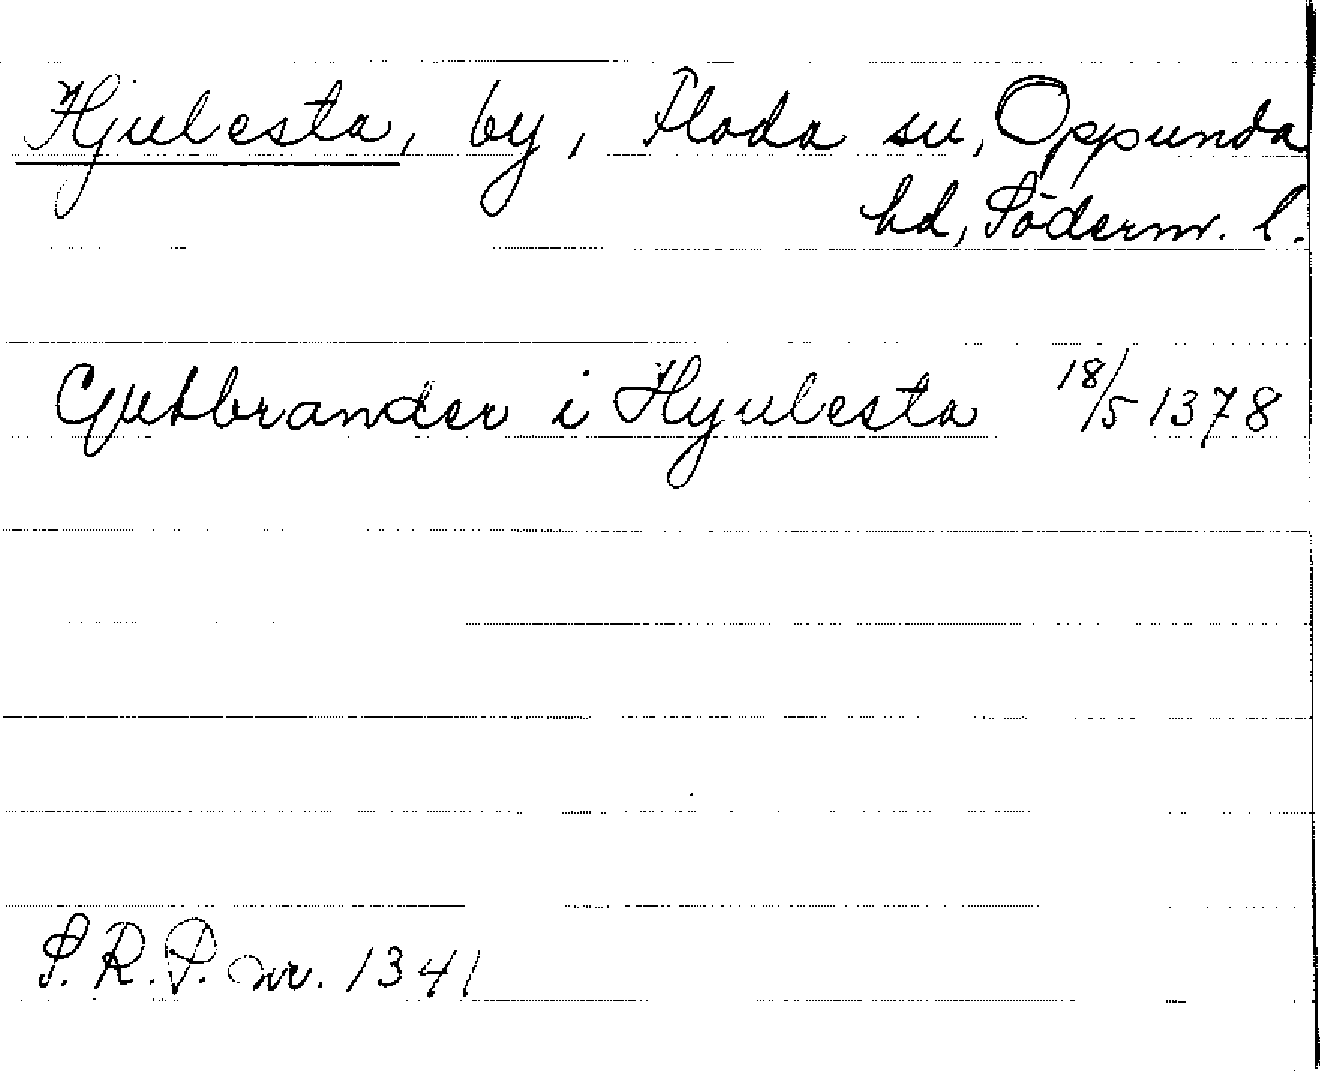 Hjulesta, by, Floda sn, Oppunda
hd, Söderm. l.
Gutbrander i Hyulesta 18/5 1378
S. R. P. nr. 1341